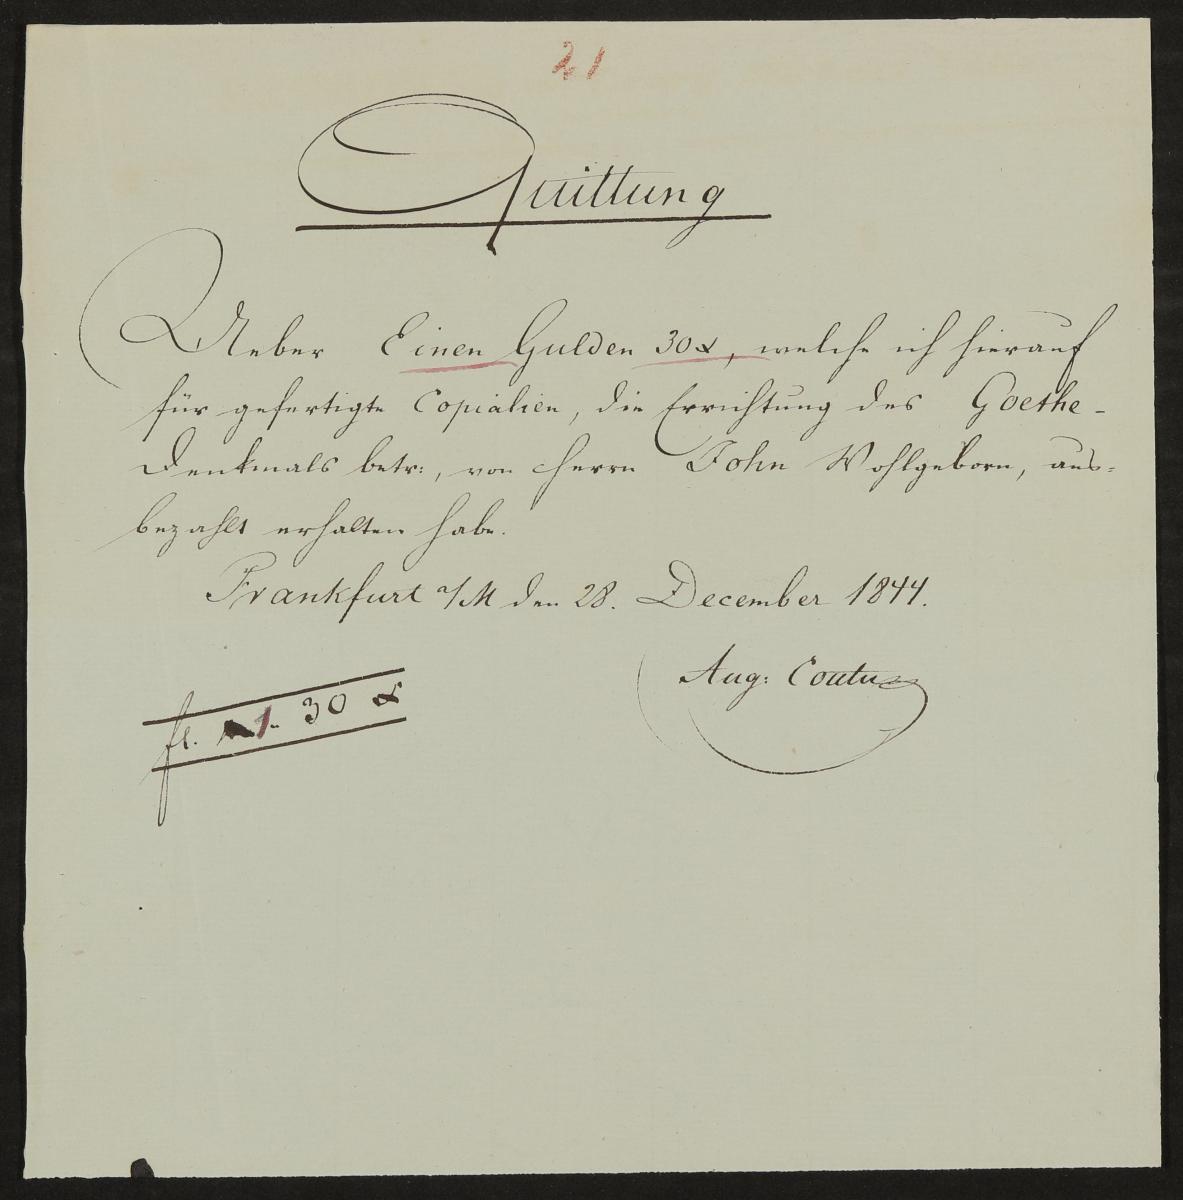 21
Quittung
Ueber Einen Gulden 30 x, welche ich hierauf
für gefertigte Copialien, die Errichtung des Goethe-
Denkmals betr:, von Herrn John Wohlgeborn, aus-
bezahlt erhalten habe.
Frankfurt a/M den 28. December 1844.
Aug: Coutu
fl. 1. 30 x